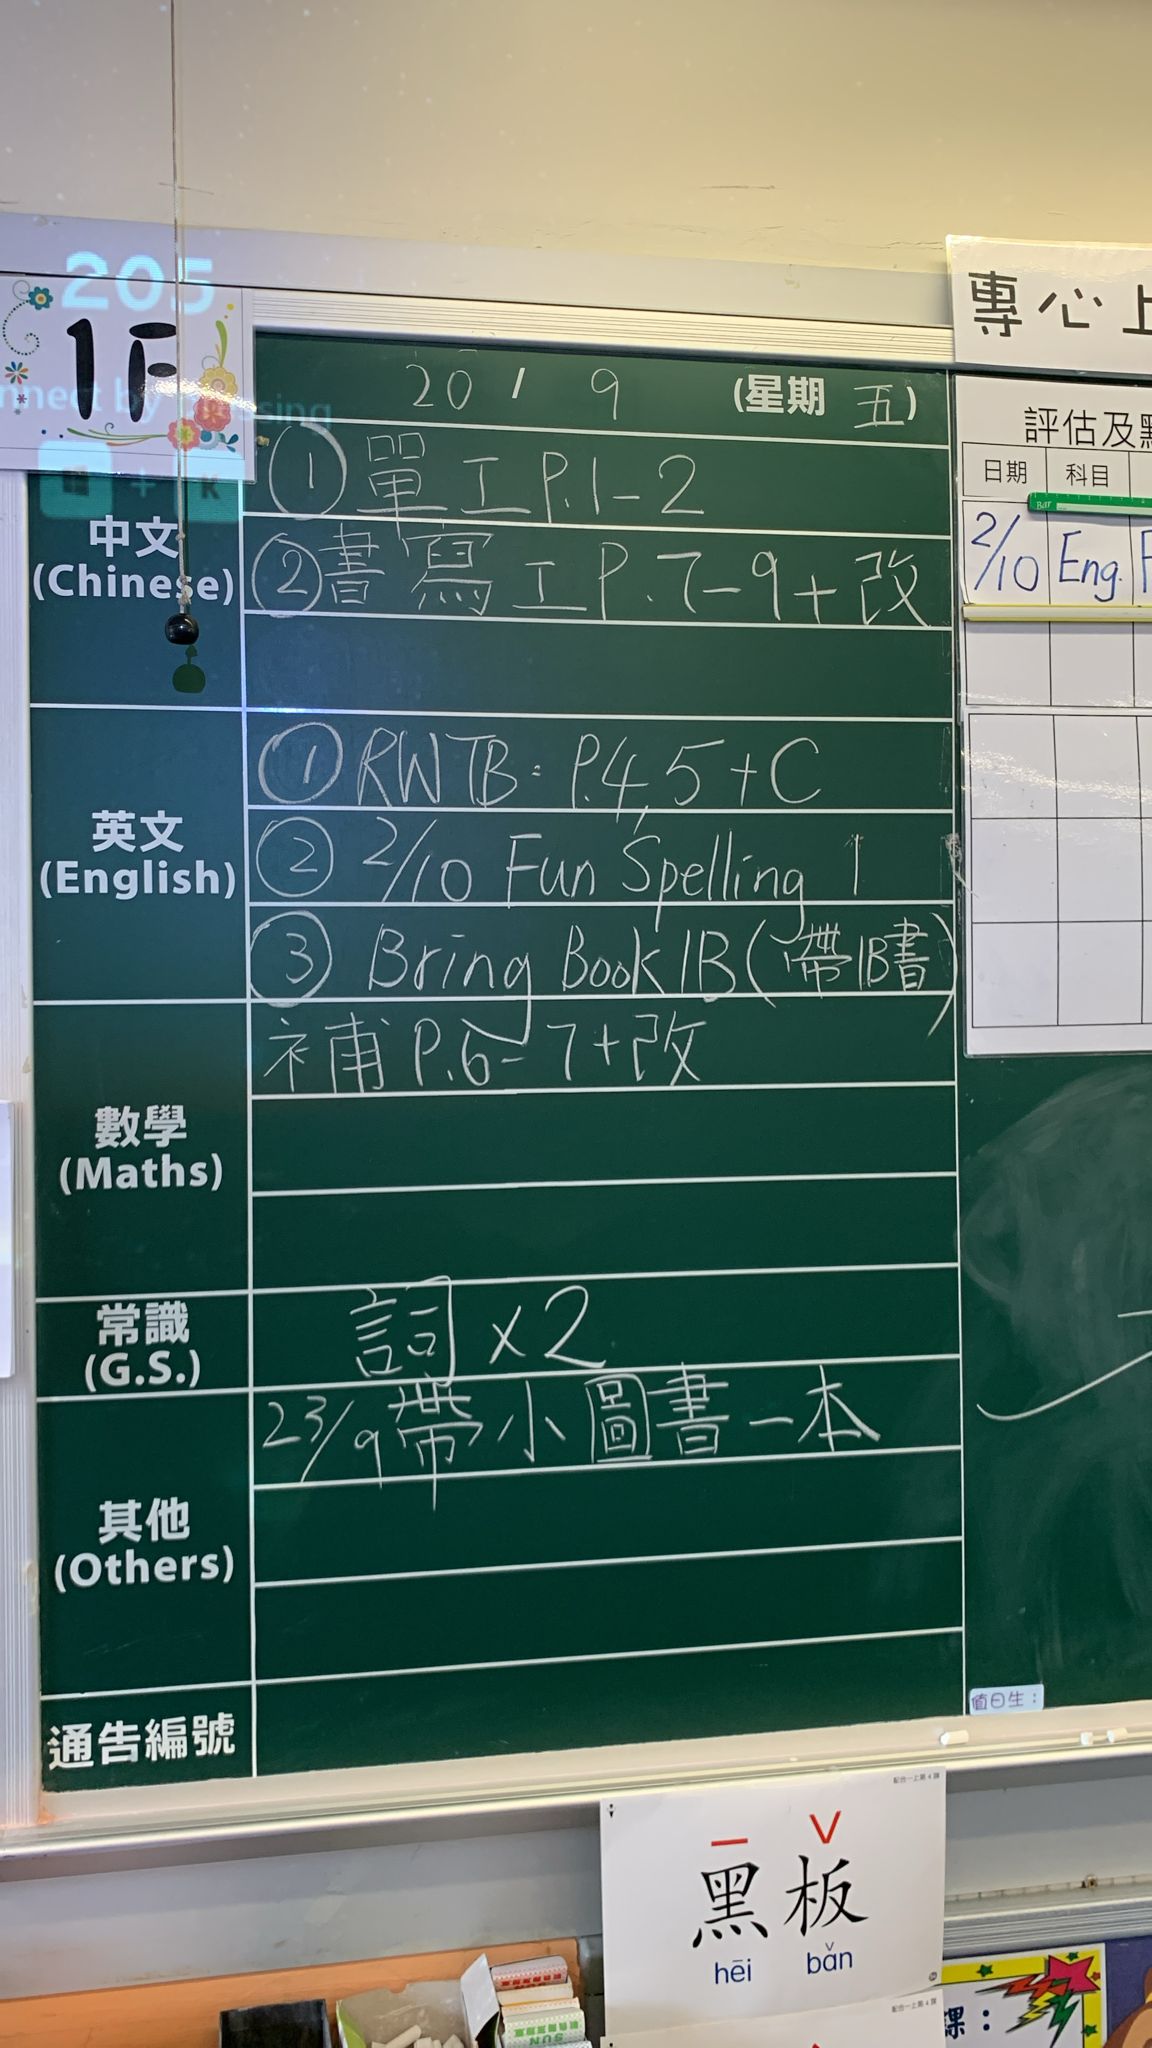 205
1F
nnect by
sing
+ K
專心上
20 / 9 (星期 五)
中文
(Chinese)
① 單工 P.1-2
② 書寫工 P.7-9 + 改
英文
(English)
① RWTB: P.4,5 + C
② 2/10 Fun Spelling 1
③ Bring Book 1B (帶1B書)
數學
(Maths)
補 P.6-7 + 改
常識
(G.S.)
詞 x2
其他
(Others)
23/9 帶小圖書一本
通告編號
評估及
日期 科目
2/10 Eng.
值日生：
配合一上第4課
黑板
hēi bǎn
配合一上第4課
課：
SUN